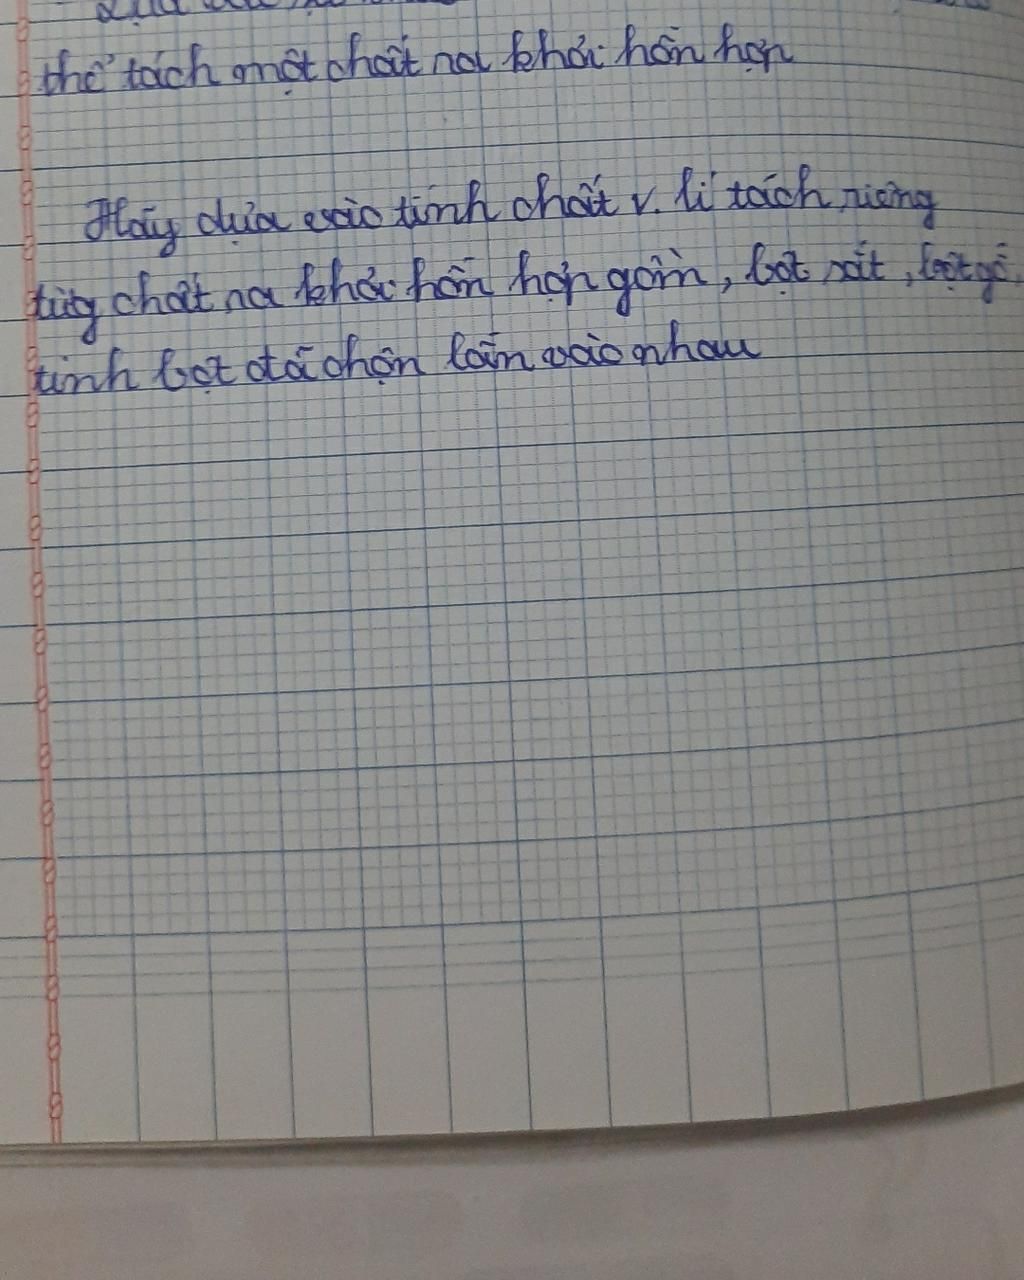 thể tách một chất ra khỏi hỗn hợp
Hãy dựa vào tính chất v. lí tách riêng
từng chất ra khỏi hỗn hợp gồm, bột sắt, bột gỗ,
tinh bột đã trộn lẫn vào nhau